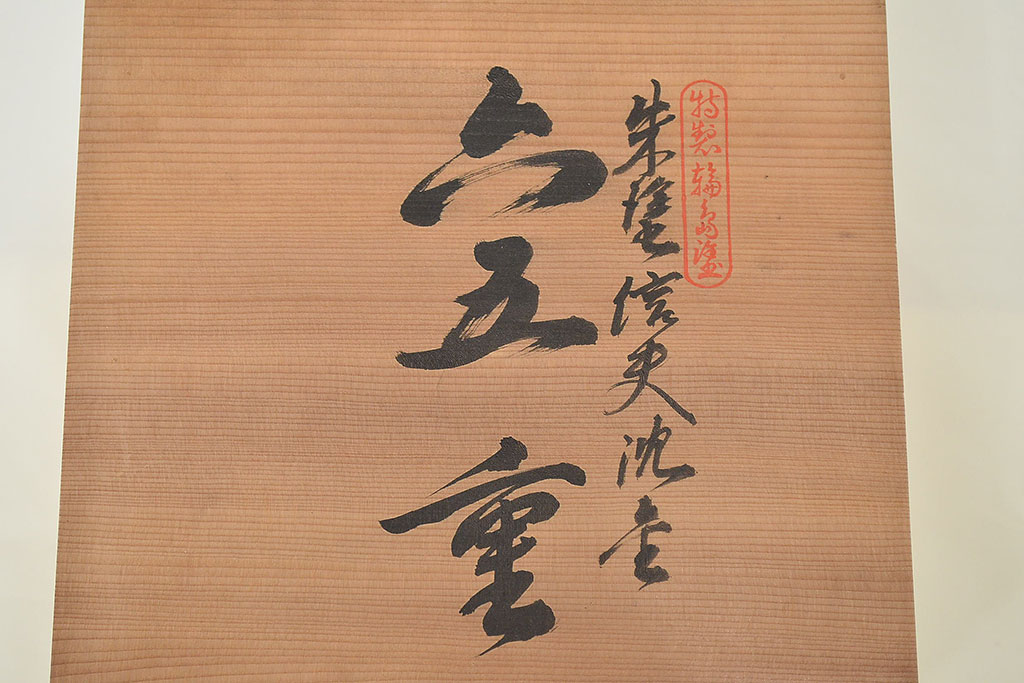 特製輪島塗
朱塗信夫沈金
六五重